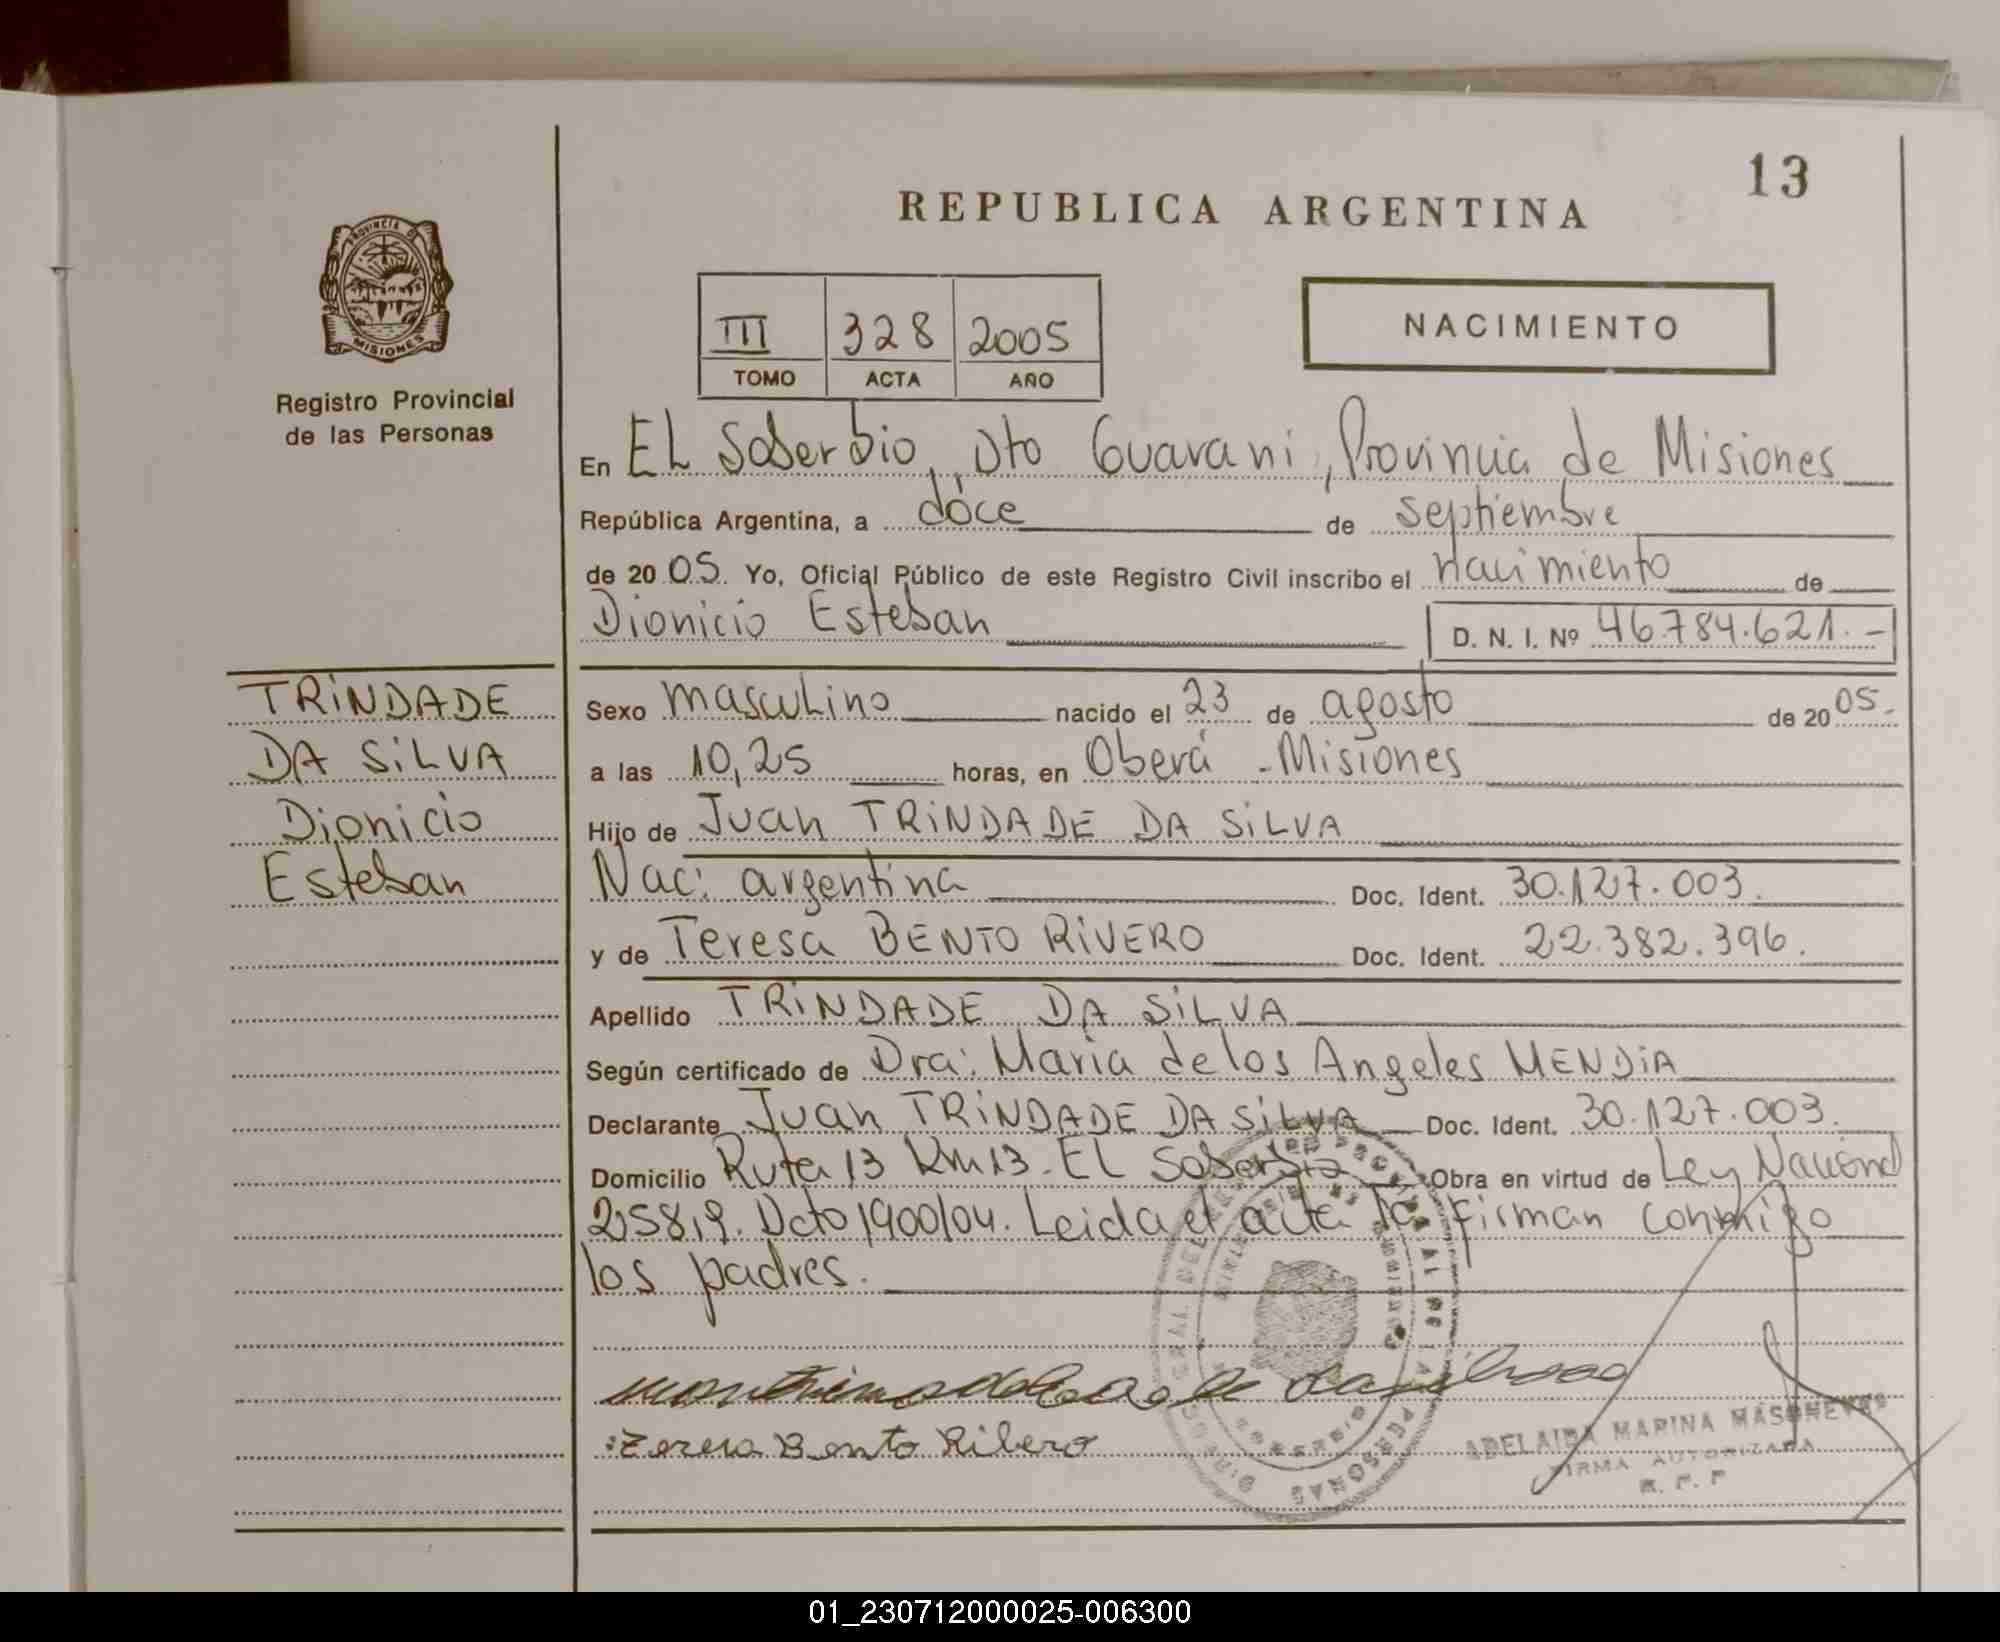 13
REPUBLICA ARGENTINA
PROVINCIA DE
MISIONES
Registro Provincial
de las Personas
III 328 2005
TOMO ACTA AÑO
NACIMIENTO
En EL Soberbio, Dto Guarani, Provincia de Misiones
República Argentina, a dóce de septiembre
de 2005. Yo, Oficial Público de este Registro Civil inscribo el nacimiento de
Dionicio Esteban D. N. I. Nº 46.784.621.-
TRINDADE
DA SILVA
Dionicio
Esteban
Sexo masculino nacido el 23 de agosto de 2005.
a las 10,25 horas, en Oberá - Misiones
Hijo de Juan TRINDADE DA SILVA
Nac: argentina Doc. Ident. 30.127.003.
y de Teresa BENTO RIVERO Doc. Ident. 22.382.396.
Apellido TRINDADE DA SILVA
Según certificado de Dra: Maria de los Angeles MENDIA
Declarante Juan TRINDADE DA SILVA Doc. Ident. 30.127.003.
Domicilio Ruta 13 Km 13. EL Soberbio Obra en virtud de Ley Nacional
25819. Dcto 1900/04. Leida el acta la firman conmigo
los padres.
Bento Ribero
ADELAIDA MARINA
FIRMA AUTORIZADA
R. P. P
01_230712000025-006300